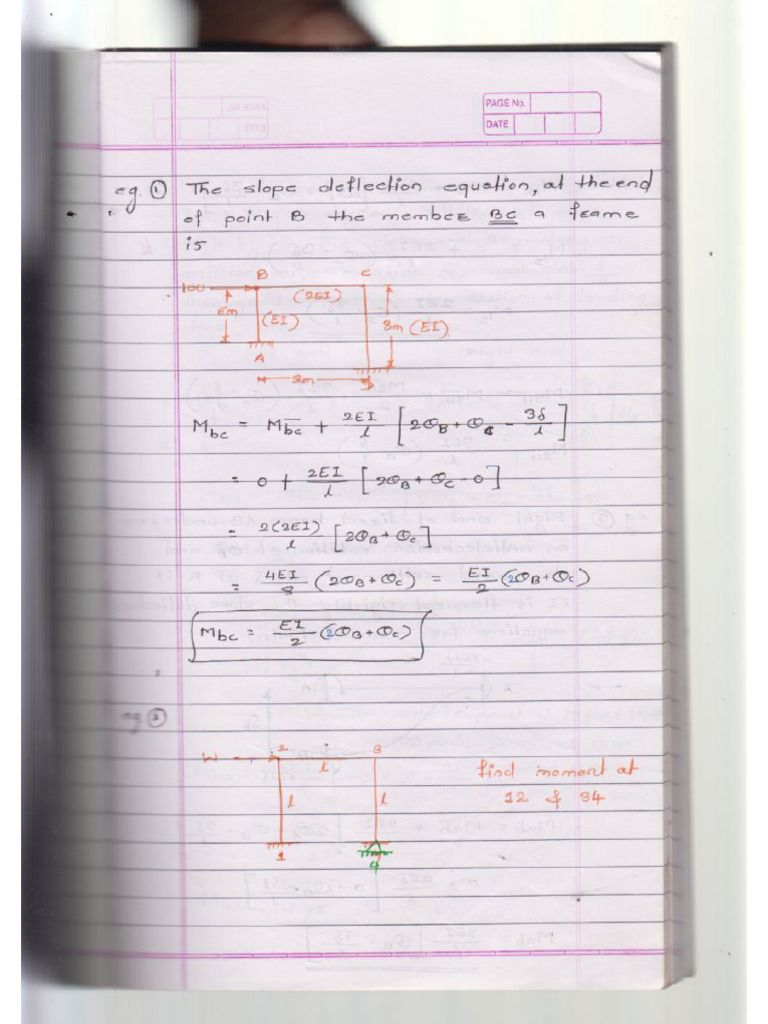 PAGE No.
DATE
eg. ① The slope deflection equation, at the end
of point B the member BC a frame
is
B C
100 (2EI)
6m (EI) 8m (EI)
A
8m D
M_bc = M̅_bc + 2EI/l [2θ_B + θ_C - 3δ/l]
= 0 + 2EI/l [2θ_B + θ_C - 0]
= 2(2EI)/l [2θ_B + θ_C]
= 4EI/8 (2θ_B + θ_C) = EI/2 (2θ_B + θ_C)
M_bc = EI/2 (2θ_B + θ_C)
eg ②
W 2 l 3
find moment at
l l 12 & 34
1 4